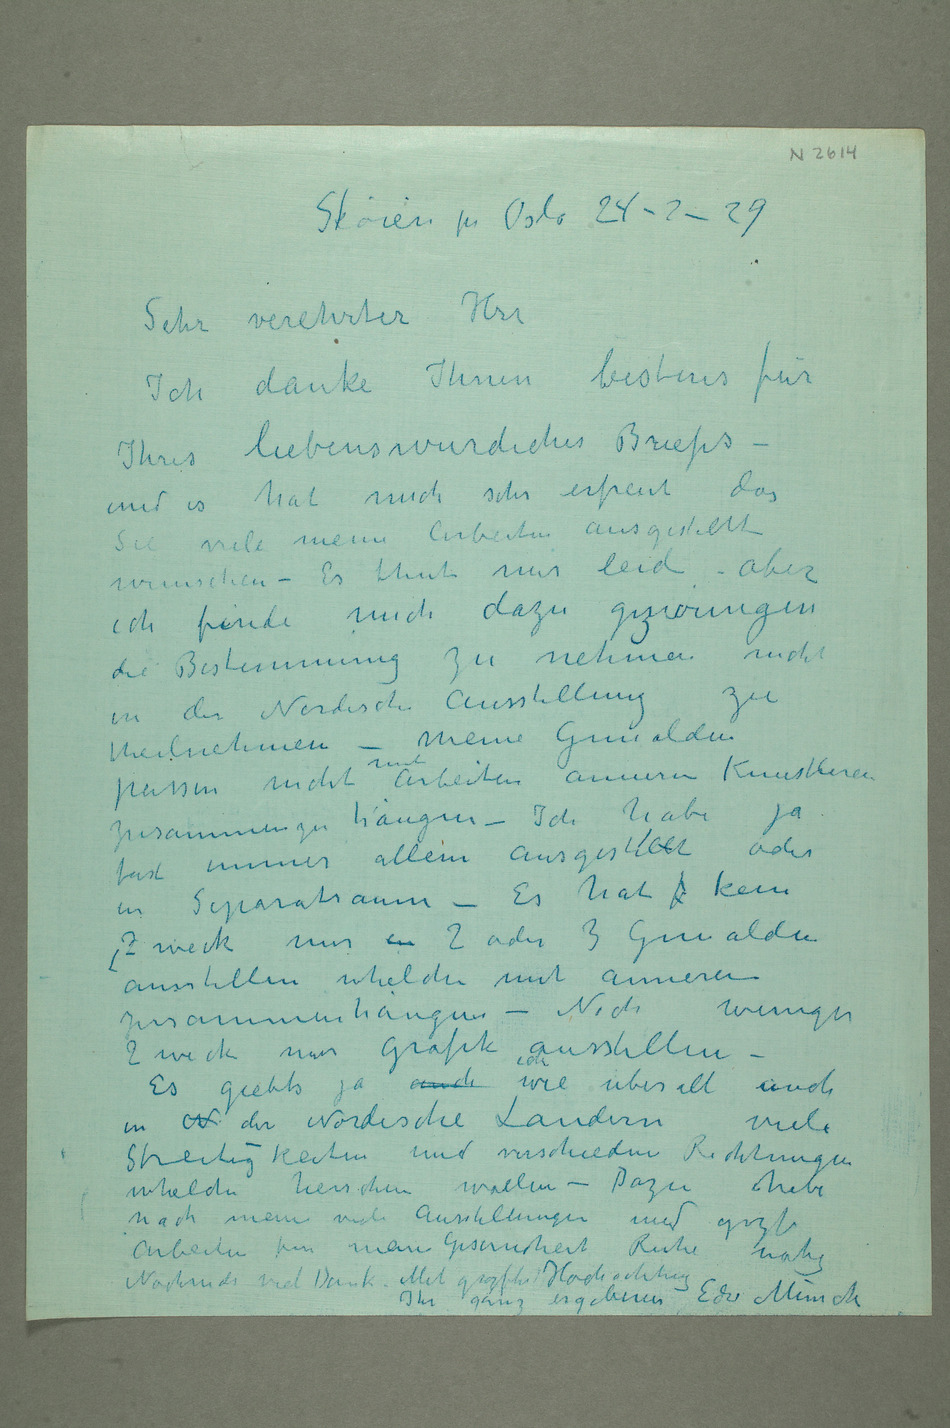 N 2614
Skøien pr Oslo 24-2-29
Sehr verehrter Hrr
Ich danke Ihnen bestens für
Ihres liebenswurdiches Briefs –
und es hat mich sehr erfreut das
Sie viele meine Arbeiten ausgestellt
wunschen – Es thut mir leid – aber
ich finde mich dazu gezwungen
die Bestemmung zu nehmen nicht
in der Nordische Ausstellung zu
theilnehmen – meine Gemalden
passen nicht mit Arbeiten anneren Kunstleren
zusammen zu hängen – Ich habe ja
fast immer allein ausgestellt oder
in Separatraum – Es hat kein
Zweck nur 2 oder 3 Gemalden
ausstellen whelche mit anneren
zusammenhängen – Noch weniger
Zweck nur Grafik ausstellen –
Es giebts ja wie überall auch
in der Nordische Landern viele
Streitigkeiten und verschiedene Richtungen
whelche herschen wollen – Dazu habe
nach meine viele Ausstellungen und grozte
Arbeiten für meine Gesundheit Ruhe nötig
Nochmals viel Dank. Mit grozter Hochachtung
Ihr ganz ergebener Edv Munch